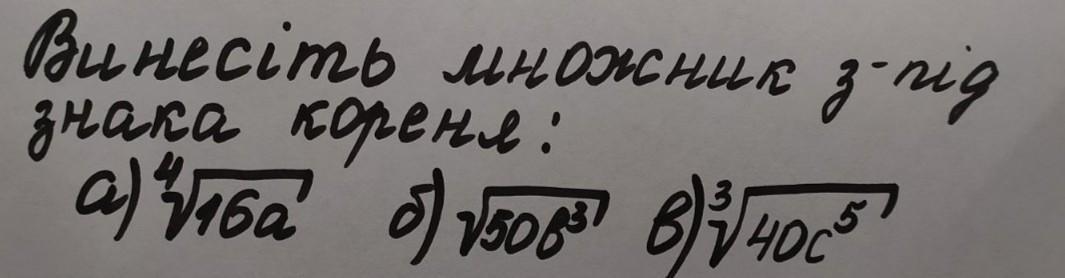 Винесіть множник з-під
знака кореня:
а) ⁴√16a б) √50b³ в) ³√40c⁵